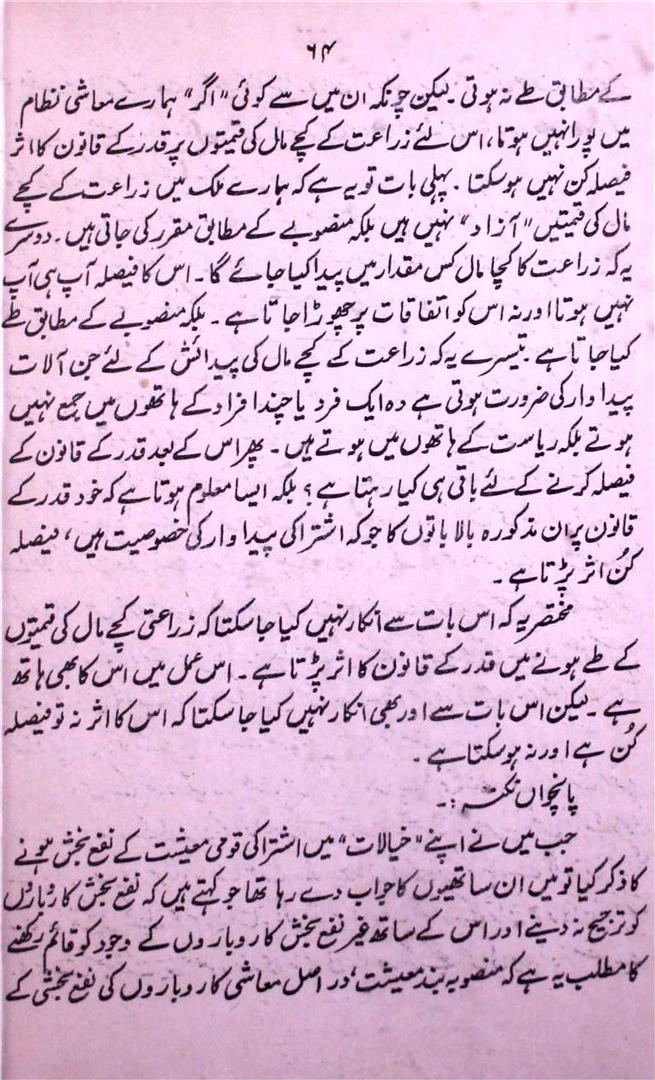 ۶۴
کے مطابق طے نہ ہوتی ۔ لیکن چونکہ ان میں سے کوئی "اگر" ہمارے معاشی نظام
میں پورا نہیں ہوتا، اس لئے زراعت کے کچے مال کی قیمتوں پر قدر کے قانون کا اثر
فیصلہ کن نہیں ہوسکتا ۔ پہلی بات تو یہ ہے کہ ہمارے ملک میں زراعت کے کچے
مال کی قیمتیں "آزاد" نہیں ہیں بلکہ منصوبے کے مطابق مقرر کی جاتی ہیں ۔ دوسرے
یہ کہ زراعت کا کچا مال کس مقدار میں پیدا کیا جائے گا ۔ اس کا فیصلہ آپ ہی آپ
نہیں ہوتا اور نہ اس کو اتفاقات پر چھوڑا جاتا ہے ۔ بلکہ منصوبے کے مطابق طے
کیا جاتا ہے ۔ تیسرے یہ کہ زراعت کے کچے مال کی پیدائش کے لئے جن آلات
پیداوار کی ضرورت ہوتی ہے وہ ایک فرد یا چند افراد کے ہاتھوں میں جمع نہیں
ہوتے بلکہ ریاست کے ہاتھوں میں ہوتے ہیں ۔ پھر اس کے بعد قدر کے قانون کے
فیصلہ کرنے کے لئے باقی ہی کیا رہتا ہے ؟ بلکہ ایسا معلوم ہوتا ہے کہ خود قدر کے
قانون پر ان مذکورہ بالا باتوں کا جو کہ اشتراکی پیداوار کی خصوصیت ہیں، فیصلہ
کُن اثر پڑتا ہے ۔
مختصر یہ کہ اس بات سے انکار نہیں کیا جا سکتا کہ زراعتی کچے مال کی قیمتوں
کے طے ہونے میں قدر کے قانون کا اثر پڑتا ہے ۔ اس عمل میں اس کا بھی ہاتھ
ہے ۔ لیکن اس بات سے اور بھی انکار نہیں کیا جا سکتا کہ اس کا اثر نہ تو فیصلہ
کُن ہے اور نہ ہوسکتا ہے ۔
پانچواں نکتہ :۔
جب میں نے اپنے "خیالات" میں اشتراکی قومی معیشت کے نفع بخش ہونے
کا ذکر کیا تو میں ان ساتھیوں کا جواب دے رہا تھا جو کہتے ہیں کہ نفع بخش کاروباروں
کو ترجیح نہ دینے اور اس کے ساتھ غیر نفع بخش کاروباروں کے وجود کو قائم رکھنے
کا مطلب یہ ہے کہ منصوبہ بند معیشت، در اصل معاشی کاروباروں کی نفع بخشی کے